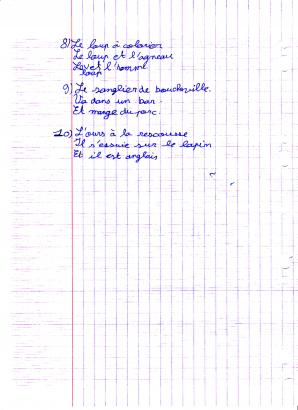 8) Le loup à colorier
Le loup et l'agneau
Loup et l'homme
9) Le sanglier de boucherville.
Va dans un bar.
Et mange du porc.
10) L'ours à la rescousse
Il s'essuie sur le lapin
Et il est anglais